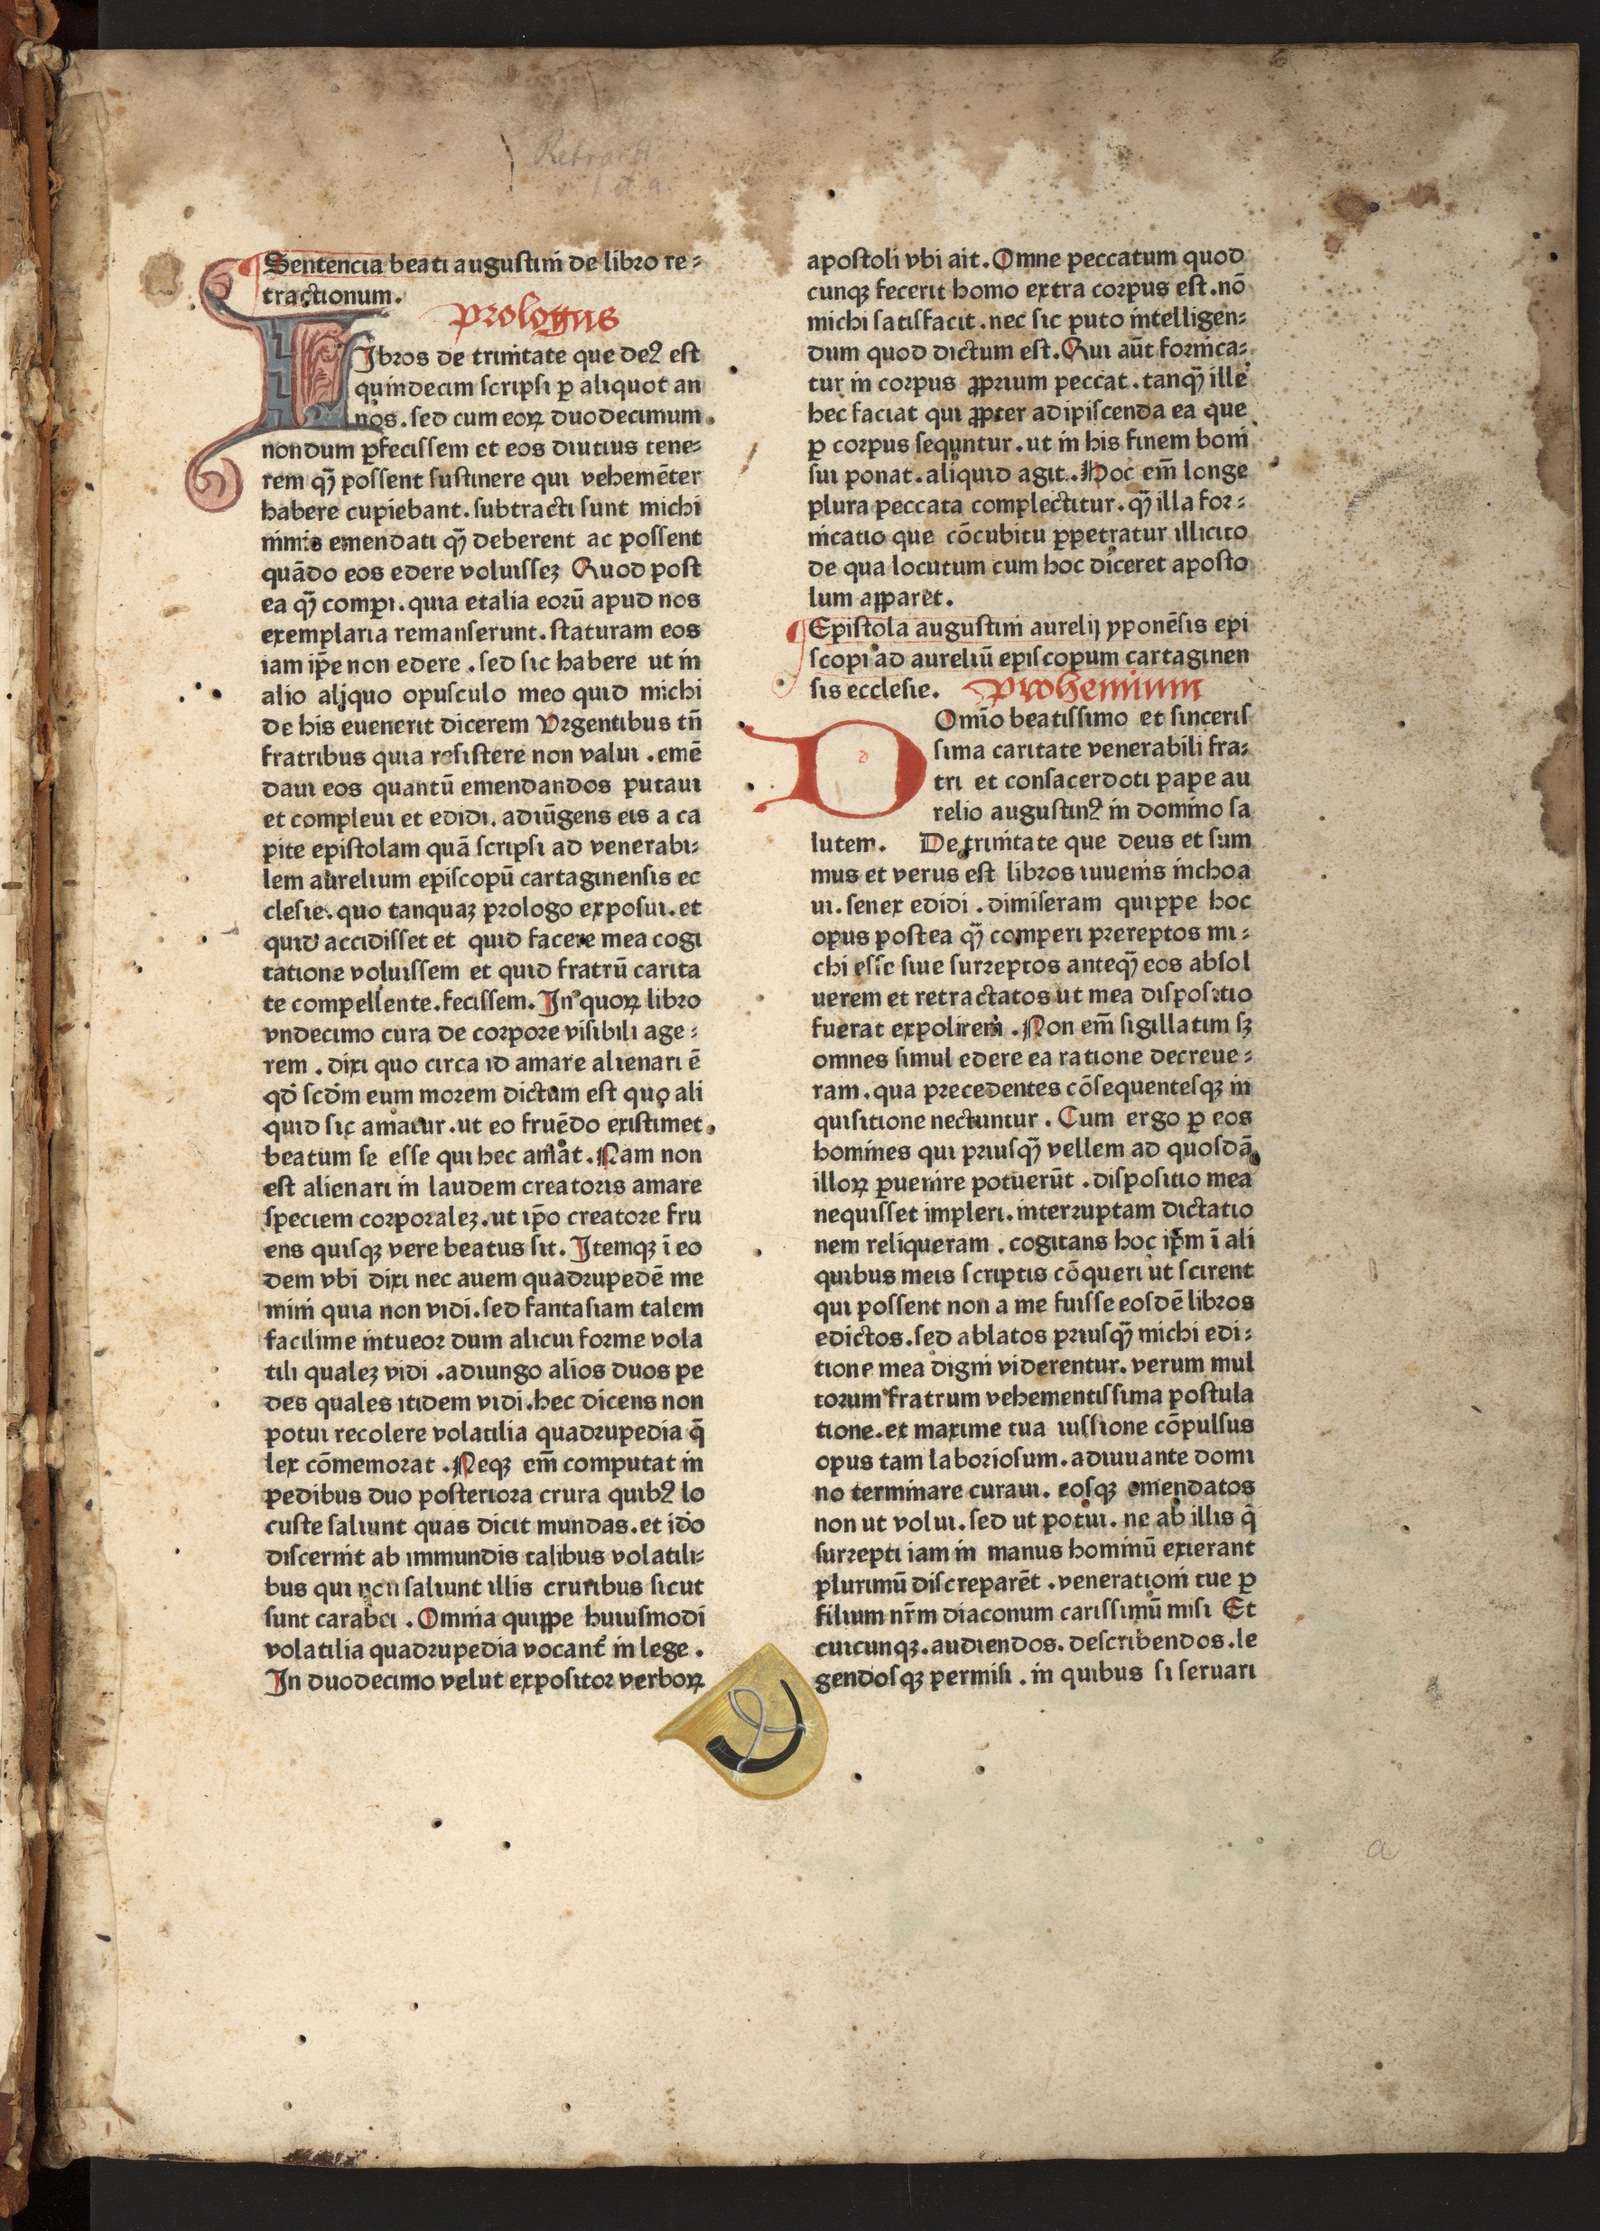 Retractt
Sentencia beati augustini de libro re⸗
tractionum.
prologus
LIbros de trinitate que deꝰ est
quindecim scripsi ꝑ aliquot an
nos. sed cum eoꝝ duodecimum
nondum ꝑfecissem et eos diutius tene⸗
rem qͣꝫ possent sustinere qui vehemēter
habere cupiebant. subtracti sunt michi
minis emendati qͣꝫ deberent ac possent
quādo eos edere voluisseꝫ Quod post
ea qͣꝫ comꝑi. quia et alia eorū apud nos
exemplaria remanserunt. staturam eos
iam ip̄e non edere. sed sic habere ut in
alio aliquo opusculo meo quid michi
de his euenerit dicerem Vrgentibus tn̄
fratribus quia resistere non valui. emē
daui eos quantū emendandos putaui
et compleui et edidi. adiūgens eis a ca
pite epistolam quā scripsi ad venerabi⸗
lem aurelium episcopū cartaginensis ec
clesie. quo tanquaꝫ prologo exposui. et
quid accidisset et quid facere mea cogi
tatione voluissem et quid fratrū carita
te compellente. fecissem. In quoꝝ libro
vndecimo cura de corpore visibili age⸗
rem. dixi quo circa id amare alienari ē
qd̄ scd̄m eum morem dictum est quo ali
quid sic amatur. ut eo fruēdo existimet
beatum se esse qui hec amat. Nam non
est alienari in laudem creatoris amare
speciem corporaleꝫ. ut ip̄o creatore fru
ens quisqꝫ vere beatus sit. Itemqꝫ ī eo
dem vbi dixi nec auem quadrupedē me
mini quia non vidi. sed fantasiam talem
facilime intueor dum alicui forme vola
tili qualeꝫ vidi. adiungo alios duos pe
des quales itidem vidi. hec dicens non
potui recolere volatilia quadrupedia q̄
lex cōmemorat. Neqꝫ em̄ computat in
pedibus duo posteriora crura quibꝰ lo
custe saliunt quas dicit mundas. et id̄o
discernit ab immundis talibus volatili⸗
bus qui non saliunt illis cruribus sicut
sunt carabei. Omnia quippe huiusmodi
volatilia quadrupedia vocant᷑ in lege.
In duodecimo velut expositor verboꝝ
apostoli vbi ait. Omne peccatum quod
cunqꝫ fecerit homo extra corpus est. nō
michi satisfacit. nec sic puto intelligen⸗
dum quod dictum est. Qui aūt fornica⸗
tur in corpus ꝓprium peccat. tanqͣꝫ ille
hec faciat qui ꝓpter adipiscenda ea que
ꝑ corpus sequntur. ut in his finem boni
sui ponat. aliquid agit. Hoc em̄ longe
plura peccata complectitur. qͣꝫ illa for⸗
nicatio que cōcubitu ꝑpetratur illicito
de qua locutum cum hoc diceret aposto
lum apparet.
Epistola augustini aurelij yponēsis epi
scopi ad aureliū episcopum cartaginen
sis ecclesie. prohemium
DOmīo beatissimo et sinceris
sima caritate venerabili fra⸗
tri et consacerdoti pape au
relio augustinꝰ in domino sa
lutem. De trinitate que deus et sum
mus et verus est libros iuuenis inchoa
ui. senex edidi. dimiseram quippe hoc
opus postea qͣꝫ comperi prereptos mi⸗
chi esse siue surreptos anteqͣꝫ eos absol
uerem et retractatos ut mea dispositio
fuerat expolirem. Non em̄ sigillatim sꝫ
omnes simul edere ea ratione decreue⸗
ram. qua precedentes cōsequentesqꝫ in
quisitione nectuntur. Cum ergo ꝑ eos
homines qui priusqͣꝫ vellem ad quosdā
illoꝝ ꝑuenire potuerūt. dispositio mea
nequisset impleri. interruptam dictatio
nem reliqueram. cogitans hoc ip̄m ī ali
quibus meis scriptis cōqueri ut scirent
qui possent non a me fuisse eosdē libros
edictos. sed ablatos priusqͣꝫ michi edi⸗
tione mea digni viderentur. verum mul
torum fratrum vehementissima postula
tione. et maxime tua iussione cōpulsus
opus tam laboriosum. adiuuante domi
no terminare curaui. eosqꝫ emendatos
non ut volui. sed ut potui. ne ab illis q̄
surrepti iam in manus hominū exierant
plurimū discreparēt. venerationi tue ꝑ
filium nr̄m diaconum carissimū misi Et
cuicunqꝫ. audiendos. describendos. le
gendosqꝫ permisi. in quibus si seruari
a